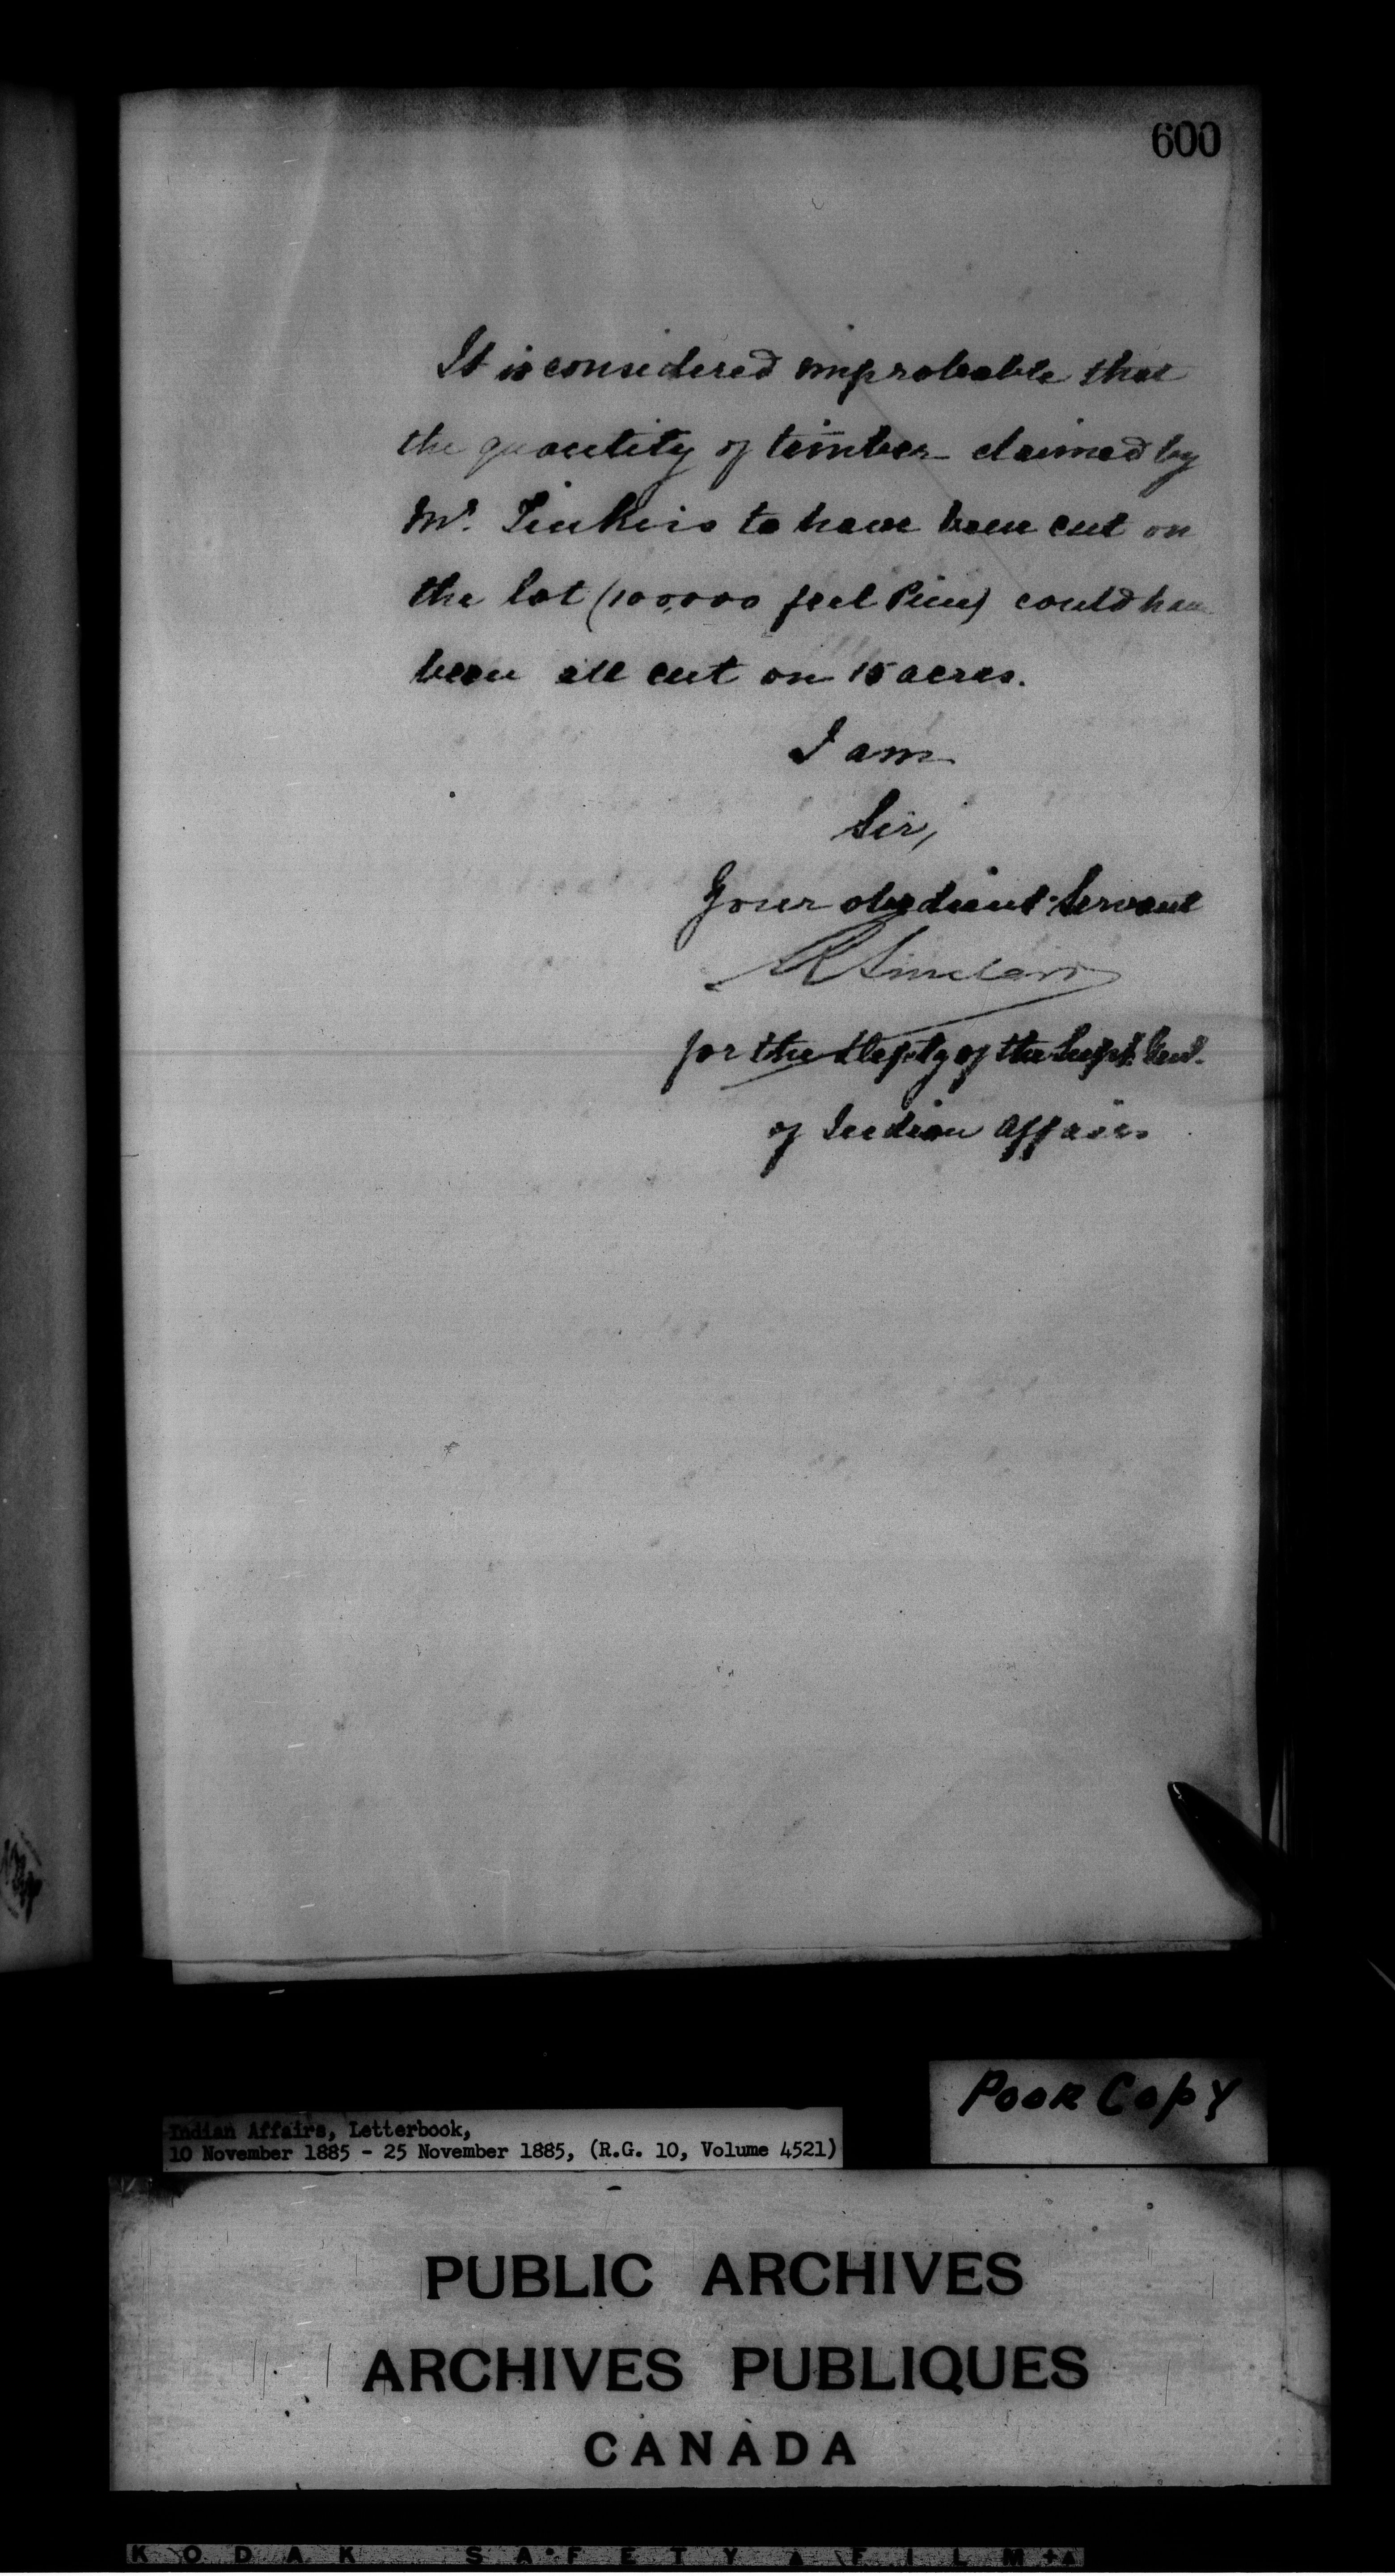 600
It is considered improbable that
the quantity of timber claimed by
Mr. Jenkins to have been cut on
the lot (100,000 feet Pine) could have
been all cut on 15 acres.
I am
Sir,
Your obedient Servant
R Sinclair
for the Depty of the Supt. Genl.
of Indian Affairs
Poor Copy
Indian Affairs, Letterbook,
10 November 1885 - 25 November 1885, (R.G. 10, Volume 4521)
PUBLIC ARCHIVES
ARCHIVES PUBLIQUES
CANADA
KODAK SAFETY FILM